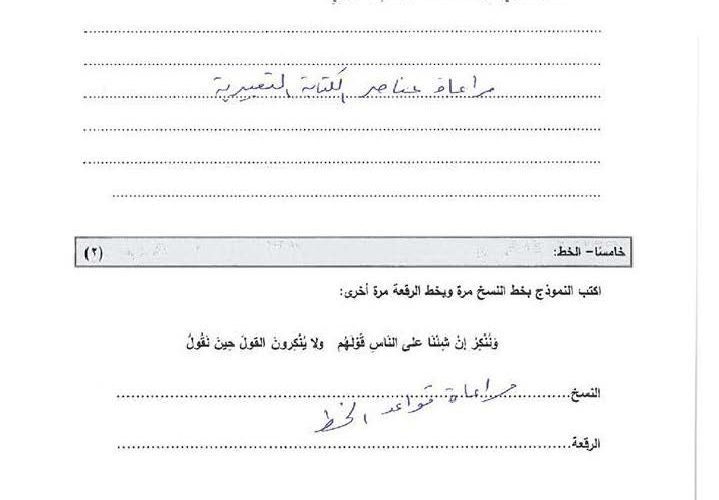 مراعاة عناصر الكتابة التعبيرية
خامسًا- الخط: (٢)
اكتب النموذج بخط النسخ مرة وبخط الرقعة مرة أخرى:
وَنُنْكِرُ إنْ شِئْنَا على الناسِ قَوْلَهُم ولا يُنْكِرونَ القولَ حِينَ نَقُولُ
النسخ
مراعاة قواعد الخط
الرقعة